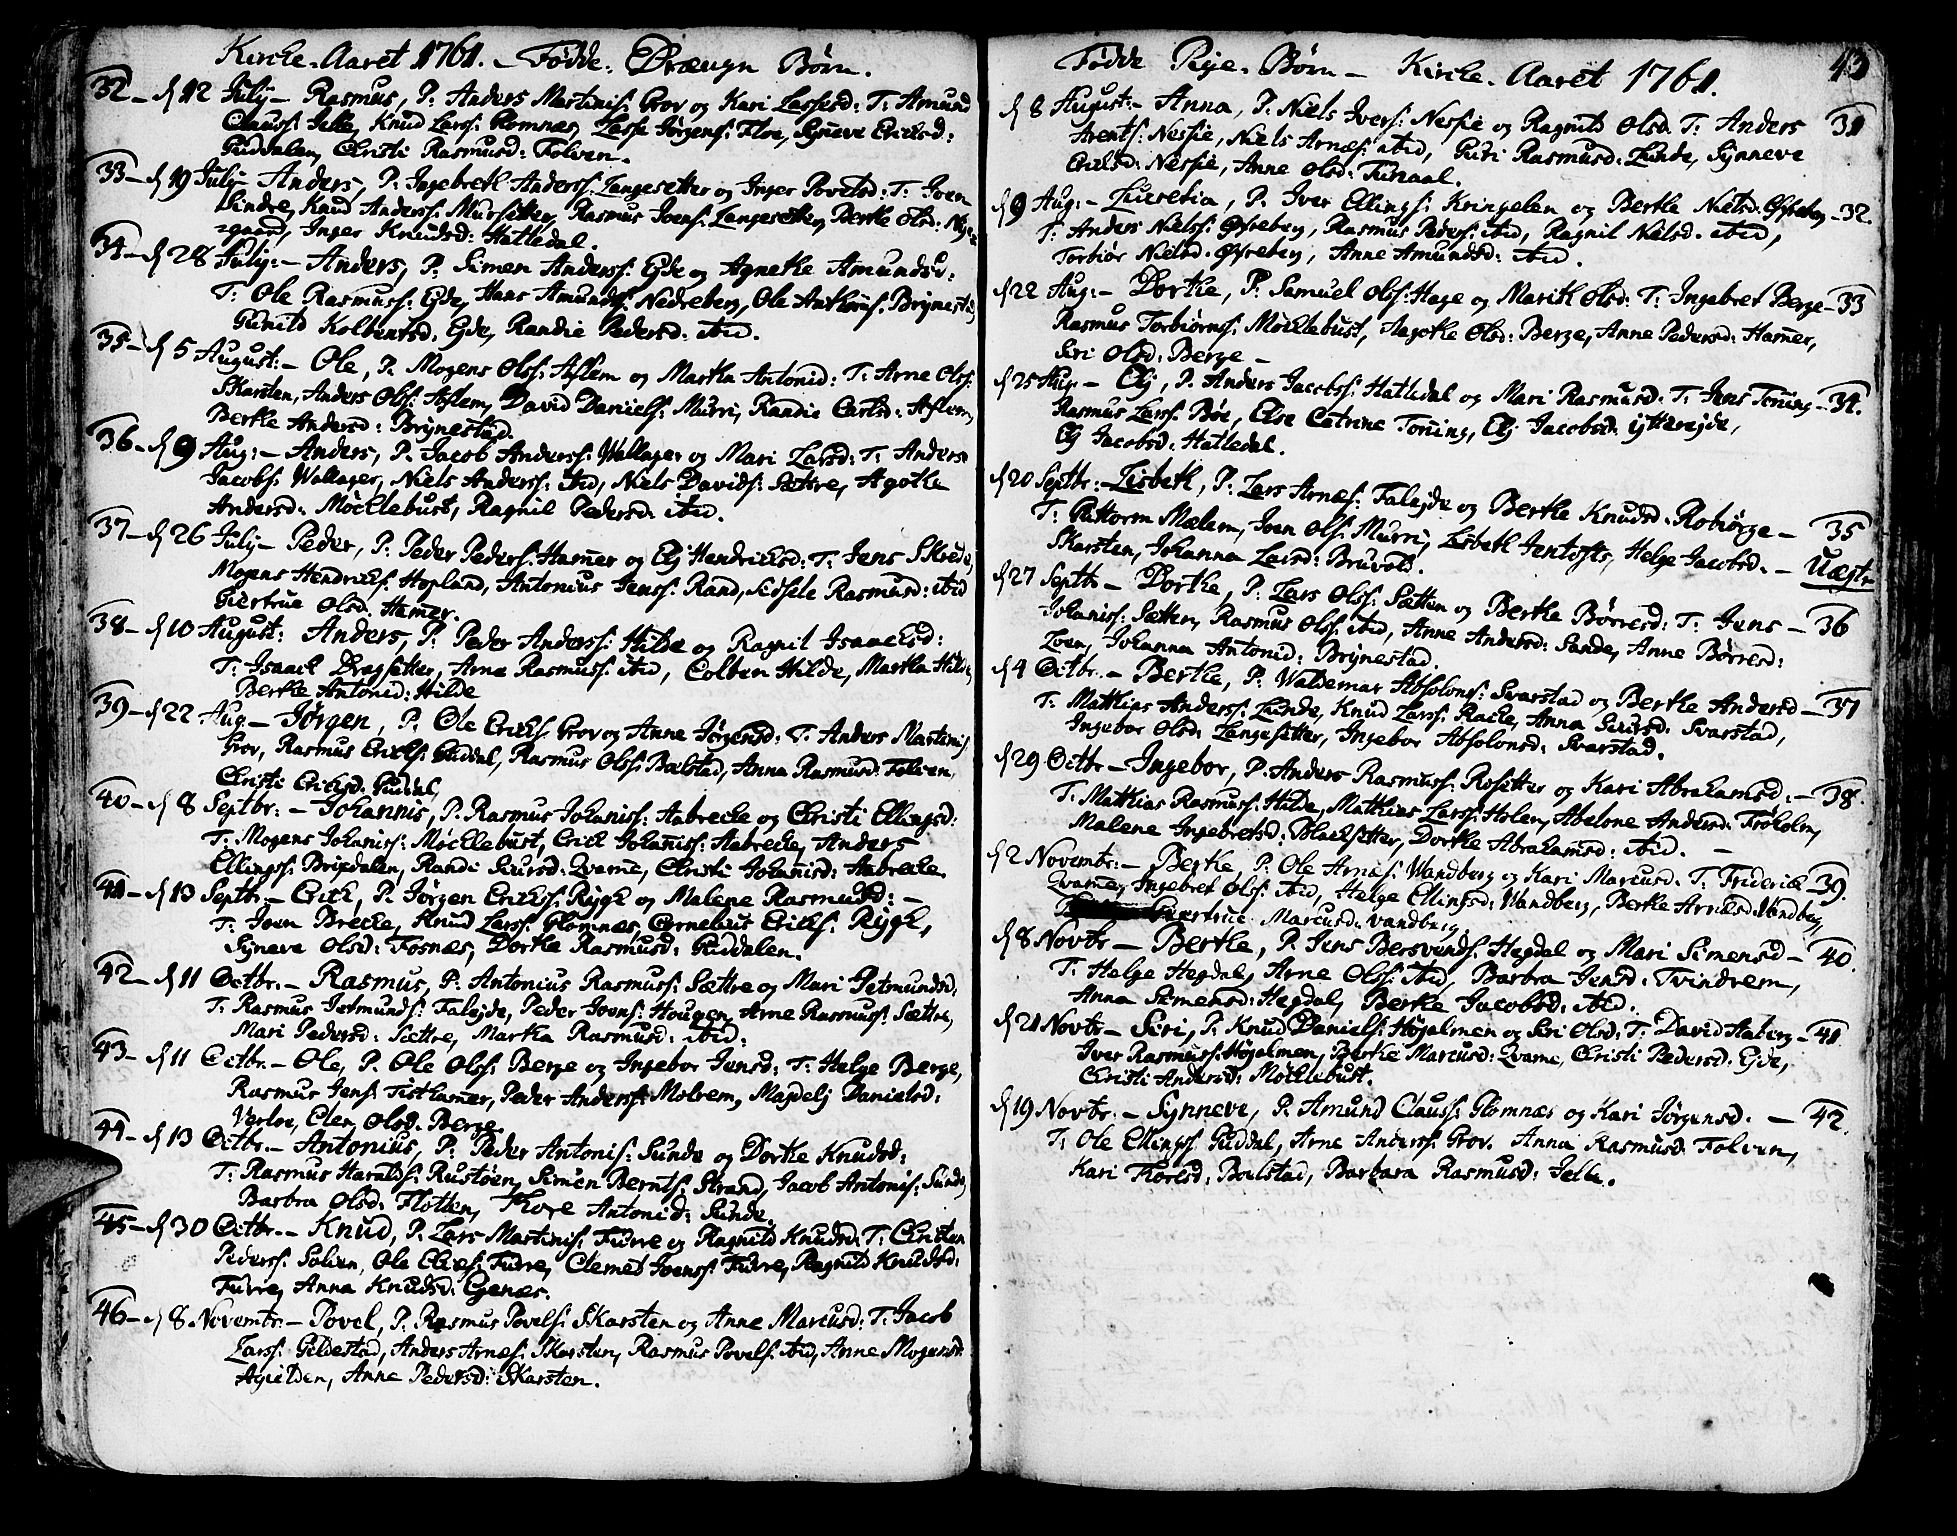 Kirche-Aaret 1761. – Fødde. Drængn Børn.
32 – d 12 July – Rasmus, P: Anders Martinis: Grov og Kari Lassesd: T: Amund
Clauss: Jelle, Knud Larss: Glomnæs, Lasse Jørgens: Floe, Syneve Ericksd:
Guddalen, Christi Rasmusd: Folven.
33 – d 19 July – Anders, P: Ingebreth Anderss: Langesetter og Inger Povelsd: T: Joen
Sindre, Knud Anderss: Mursetter, Rasmus Joens: Langesetter, Berthe Olsd: Nyg-
gaard, Inger Knudsd: Hatledal.
34 – d 28 July: – Anders, P: Simen Anderss: Eyde og Agnethe Amundsd:
T: Ole Rasmuss: Eyde, Hans Amunds: Nedreberg, Ole Anthonis: Brynestad,
Gunild Kolbentsd: Eyde, Randie Pedersd: ibid.
35 – d 5 August: – Ole, P. Mogens Olss: Aflem og Martha Antonid: T: Arne Olss:
Skarsten, Anders Olss: Aflem, David Daniels: Murri, Randie Carlsd: Aflem,
Berthe Andersd: Brynestad.
36 – d 9 Aug: – Anders, P. Jacob Anderss: Wallager og Mari Larsd: T: Anders
Jacobs: Wallager, Niels Anderss: ibid, Niels Davids: Sættre, Agothe
Andersd: Möcklebust, Ragnil Pedersd: ibid.
37 – d 26 July – Peder, P: Peder Peders: Hamer og Elj Hendricksd: T: Jens Skrede,
Mogens Hendricks: Hopland, Antonius Jenss: Rand, Sidsele Rasmusd: ibid
Giertrue Olsd: Hamer.
38 – d 10 August: Anders, P: Peder Anderss: Hilde og Ragnil Isaacksd:
T: Isaack Dragsetter, Arne Rasmuss: ibid, Colben Hilde, Martha Hilde,
Berthe Antonid: Hilde
39 – d 22 Aug – Jørgen, P: Ole Ericks: Grov og Anne Jørgensd: T: Anders Martinis:
Grov, Rasmus Ericks: Guddal, Rasmus Olss: Bœlstad, Anna Rasmusd: Folven,
Christi Ericksd: Gudal,
40 – d 8 Septbr: – Johannis, P. Rasmus Johanis: Aabrecke og Christi Ellingsd:
T: Mogens Johanis: Möcklebust, Erick Johanis: Aabrecke, Anders
Ellingss: Brigsdalen, Randi Siursd: Qvame, Christi Johanisd: Aabrecke.
41 – d 13 Septbr – Erick, P: Jørgen Ericks: Rygg og Malene Rasmusd: –
T: Joen Brecke, Knud Larss: Glomnæs, Cornelius Ericks: Rygg,
Syneve Olsd: Fosnæs, Dorthe Rasmusd: Guddalen.
42 – d 11 Octbr. – Rasmus, P: Antonius Rasmus: Sættre og Mari Jetmundsd:
T: Rasmus Jetmunds: Falejde, Peder Joens: Hougen, Arne Rasmuss: Sættre,
Mari Pedersd: Sættre, Martha Rasmusd: ibid:
43 – d 11 Octbr. – Ole, P. Ole Olss: Berge og Ingebor Jensd: T: Helge Berge,
Rasmus Jens: Tisthamer, Peder Anderss: Molrem, Magdelj Danielsd:
Verloe, Elen Olsd: Berge.
44 – d 13 Octbr. – Antonius, P: Peder Antonis: Sunde og Dorthe Knudsd:
T: Rasmus Haralds: Rustøen, Simen Bernts: Strand, Jacob Antonis: Sunde,
Barbra Olsd: Flotten, Thore Antonid: Sunde.
45 – d 30 Octbr. – Knud, P. Lars Martinis: Furre og Ragnild Knudsd: T: Christen
Pederss: Solven, Ole Elies: Furre, Clemet Joenss: Furre, Ragnild Knudsd:
Furre, Anna Knudsd: Egenæs.
46 – d 8 Novembr: – Povel, P. Rasmus Povels: Skarsten og Anne Marcusd: T: Jacob
Larss: Gildestad, Anders Arnæs: Skarsten, Rasmus Povels: ibid, Anne Mogensd:
Agietden, Anne Pedersd: Skarsten.
43
Fødde Pige-Børn – Kirche-Aaret 1761.
d 8 August: – Anna, P. Niels Ivers: Nesfie og Ragnild Olsd. T: Anders 31
Arents: Nesfie, Niels Arnæs: ibid, Guri Rasmusd: Lunde, Synneve
Ericksd: Nesfie, Anne Olsd: Tunaal.
d 9 Aug: – Lucretia, P. Iver Ellings: Kringelen og Berthe Nielsd. Øfreberg – 32.
T: Anders Nielss: Øfreberg, Rasmus Peders: ibid, Ragnil Nielsd. ibid,
Torbiør Nielsd. Øfreberg, Anne Amundsd: ibid.
d 22 Aug: – Dorthe, P: Samuel Olss: Hage og Marith Olsd: T: Ingebret Berge – 33
Rasmus Torbiørns: Möcklebust, Aagothe Olsd: Berge, Anne Pedersd: Hamer,
Siri Olsd: Berge –
d 25 Aug – Elj, P: Anders Jacobss: Hatledal og Mari Rasmusd: T: Jens Toning – 34.
Rasmus Larss: Bøe, Else Catrine Toning, Elj Jacobsd: ytterejde,
Elj Jacobsd: Hatledal.
d 20 Septbr: – Lisbeth, P: Lars Arnæs: Falejde og Berthe Knudsd. Robiørge – 35
T: Guttorm Mælem, Joen Olss: Murri, Lisbeth Jentofts, Helge Jacobsd. – Uægte
Skarsten, Johanna Larsd: Bruvold.
d 27 Septbr – Dorthe, P. Lars Olss: Sætten og Berthe Børresd: T: Jens – 36
Johanis: Sætten, Rasmus Olss: ibid, Anne Andersd: Sande, Anne Børresd:
Loen, Johanna Antonid: Brynestad.
d 4 Octbr. – Berthe, P: Waldemar Absolons: Svarstad og Berthe Andersd – 37
T: Matthias Anderss: Lunde, Knud Larss: Racke, Anna Siursd: Svarstad,
Ingebor Olsd: Langesetter, Ingebor Absolonsd: Svarstad.
d 29 Octbr – Ingebor, P: Anders Rasmuss: Rosetter og Kari Abrahamsd: – 38.
T: Matthias Rasmuss: Hilde, Matthias Larss: Holen, Abelone Andersd: Frøholm,
Malene Ingebretsd: Blacksetter, Dorthe Abrahamsd: ibid. –
d 2 Novembr: – Berthe, P. Ole Arnæs: Wandberg og Kari Marcusd. T: Friderick 39.
Qvame, Ingebret Olss: ibid, Helge Ellingsd: Wandberg, Berthe Arnæsd: Wandberg,
Giertrue Marcusd. Vandberg.
d 8 Novbr – Berthe, P. Jens Bersvends: Hegdal og Mari Simensd – 40.
T: Helge Hegdal, Arne Olss: ibid, Barbra Jensd: Tvindrem,
Anna Simensd: Hegdal, Berthe Jacobsd: ibid.
d 21 Novbr – Siri, P: Knud Daniels: Højalmen og Siri Olsd: T: David Aaberg – 41
Iver Rasmuss: Højalmen, Berthe Marcusd: Qvame, Christi Pedersd: Eyde,
Christi Andersd: Möcklebust.
d 19 Novbr: – Synneve, P. Amund Clauss: Glomnæs og Kari Jørgensd. – 42.
T: Ole Ellings: Guddal, Arne Anderss: Grov. Anna Rasmusd: Folven,
Kari Thoresd: Bœlstad, Barbara Rasmusd: Jelle.